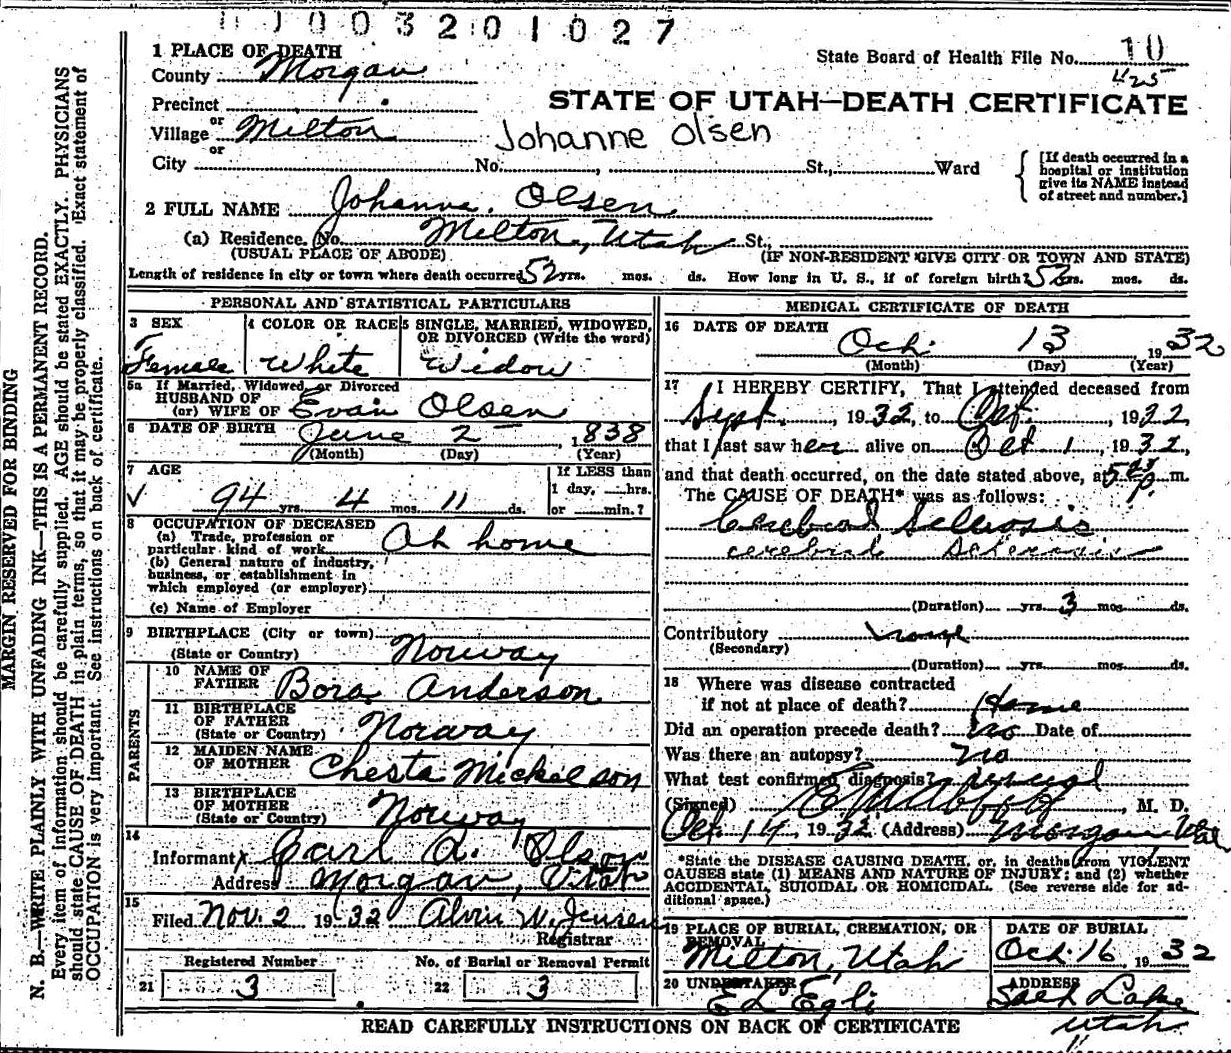 0 0 3 2 0 1 0 2 7
1 PLACE OF DEATH
State Board of Health File No. 10
425
County Morgan
STATE OF UTAH—DEATH CERTIFICATE
Precinct
or
Village Milton
Johanne Olsen
or
City No. , St., Ward
[If death occurred in a hospital or institution give its NAME instead of street and number.]
2 FULL NAME Johanna Olsen
(a) Residence. No. Milton, Utah St.,
(USUAL PLACE OF ABODE) (IF NON-RESIDENT GIVE CITY OR TOWN AND STATE)
Length of residence in city or town where death occurred 52 yrs. mos. ds. How long in U. S., if of foreign birth? 52 yrs. mos. ds.
PERSONAL AND STATISTICAL PARTICULARS
3 SEX
Female
4 COLOR OR RACE
White
5 SINGLE, MARRIED, WIDOWED,
OR DIVORCED (Write the word)
Widow
5a If Married, Widowed or Divorced
HUSBAND OF
(or) WIFE OF Evan Olsen
6 DATE OF BIRTH June 2, 1838
(Month) (Day) (Year)
7 AGE
94 yrs. 4 mos. 11 ds.
If LESS than
1 day, hrs.
or min.?
8 OCCUPATION OF DECEASED
(a) Trade, profession or
particular kind of work At home
(b) General nature of industry,
business, or establishment in
which employed (or employer)
(c) Name of Employer
9 BIRTHPLACE (City or town)
(State or Country) Norway
PARENTS
10 NAME OF
FATHER Bora Anderson
11 BIRTHPLACE
OF FATHER
(State or Country) Norway
12 MAIDEN NAME
OF MOTHER Chesta Mickelson
13 BIRTHPLACE
OF MOTHER
(State or Country) Norway
14
Informant Carl A. Olson
Address Morgan, Utah
15
Filed Nov. 2 1932 Alvin W. Jensen
Registrar
Registered Number No. of Burial or Removal Permit
21 3 22 3
MEDICAL CERTIFICATE OF DEATH
16 DATE OF DEATH
Oct. 13 1932
(Month) (Day) (Year)
17 I HEREBY CERTIFY, That I attended deceased from
Sept. , 1932, to Oct. , 1932
that I last saw her alive on Oct 1, 1932,
and that death occurred, on the date stated above, at p. m.
The CAUSE OF DEATH* was as follows:
Cerebral Sclerosis
cerebral sclerosis
(Duration) yrs. 3 mos. ds.
Contributory
(Secondary)
(Duration) yrs. mos. ds.
18 Where was disease contracted
if not at place of death? Home
Did an operation precede death? no Date of
Was there an autopsy? no
What test confirmed diagnosis?
(Signed) , M. D.
Oct. 14, 1932 (Address) Morgan Utah
*State the DISEASE CAUSING DEATH, or, in deaths from VIOLENT
CAUSES state (1) MEANS AND NATURE OF INJURY; and (2) whether
ACCIDENTAL, SUICIDAL OR HOMICIDAL. (See reverse side for ad-
ditional space.)
19 PLACE OF BURIAL, CREMATION, OR
REMOVAL
Milton, Utah
DATE OF BURIAL
Oct. 16 1932
20 UNDERTAKER
Ed Egli
ADDRESS
Salt Lake
Utah
READ CAREFULLY INSTRUCTIONS ON BACK OF CERTIFICATE
MARGIN RESERVED FOR BINDING
N. B.—WRITE PLAINLY WITH UNFADING INK—THIS IS A PERMANENT RECORD.
Every item of information should be carefully supplied. AGE should be stated EXACTLY. PHYSICIANS
should state CAUSE OF DEATH in plain terms, so that it may be properly classified. Exact statement of
OCCUPATION is very important. See instructions on back of certificate.